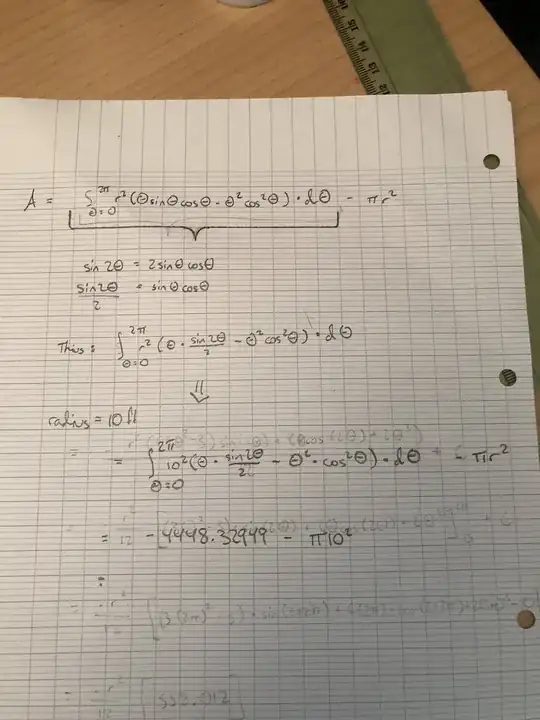 113 114 115 116
A = ∫_{θ=0}^{2π} r²(θsinθcosθ - θ²cos²θ) • dθ - πr²
sin 2θ = 2sinθcosθ
sin2θ/2 = sinθcosθ
Thus: ∫_{θ=0}^{2π} r²(θ • sin2θ/2 - θ²cos²θ) • dθ
⇓
radius = 10 ft
= ∫_{θ=0}^{2π} 10²(θ • sin2θ/2 - θ² • cos²θ) • dθ - πr²
= -4448.32949 - π10²